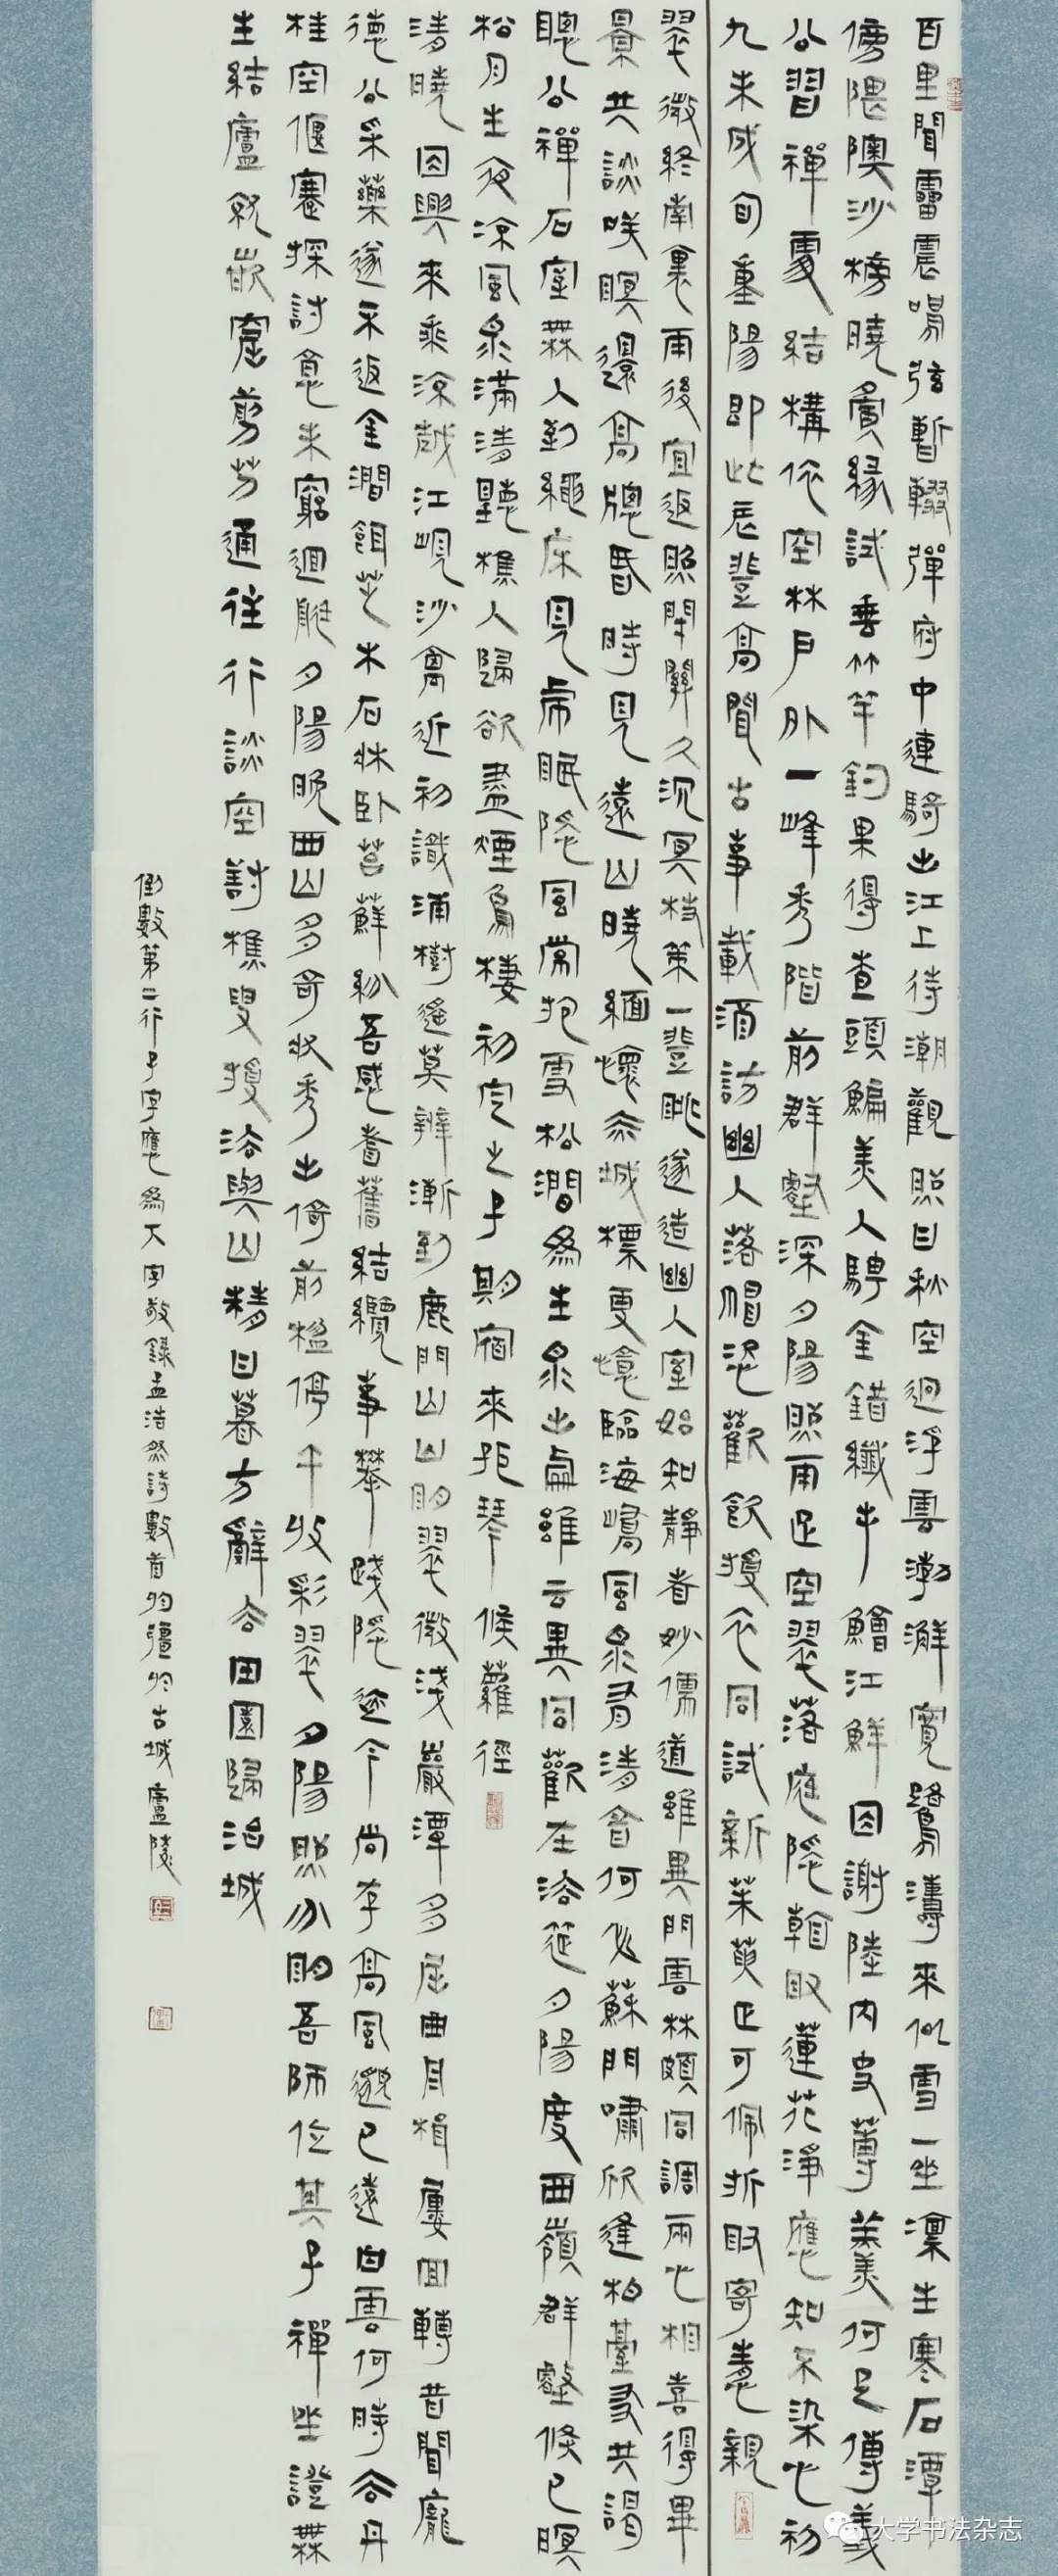 百里聞雷震鳴弦暫輟彈府中連騎出江上待潮觀照日秋空迥浮雲渤澥寬鷺濤來似雪一坐凜生寒石潭
傍隈隩沙榜曉夤緣試垂竹竿釣果得查頭鯿美人騁金錯纖手鱠江鮮因謝陸內史蓴羹何足傳義
公習禪處結構依空林戶外一峰秀階前群壑深夕陽照雨足空翠落庭陰看取蓮花淨應知不染心初
九未成旬重陽即此辰登高聞古事載酒訪幽人落帽恣歡飲授衣同試新茱萸正可佩折取寄情親
翠微終南裏雨後宜返照閉關久沉冥杖策一登眺遂造幽人室始知靜者妙儒道雖異門雲林頗同調兩心相喜得畢
景共談笑暝還高牕昏時見遠山曉緬懷赤城標更憶臨海嶠風泉有清音何必蘇門嘯欣逢柏臺友共謁
聰公禪石室無人到繩床見虎眠陰風常抱雪松澗為生泉出處雖云異同歡在法筵夕陽度西嶺群壑倏已暝
松月生夜涼風泉滿清聽樵人歸欲盡煙鳥棲初定之子期宿來孤琴候蘿徑
清曉因興來乘涼越江峴沙禽近初識浦樹遙莫辨漸到鹿門山山明翠微淺巖潭多屈曲舟楫屢回轉昔聞龐
德公采藥遂不返金澗餌芝朮石床臥苔蘚紛吾感耆舊結纜事攀踐隱迹今尚存高風邈已遠白雲何時去丹
桂空偃蹇探討意未窮迴艇夕陽晚西山多奇狀秀出倚前楹停午收彩翠夕陽照分明吾師住其子禪坐證無
生結廬就嵌窟剪苕通往行談空對樵叟授法與山精日暮方辭去田園歸冶城
倒數第二行子字應為下字敬錄孟浩然詩數首明疆於古城廬陵
大学书法杂志